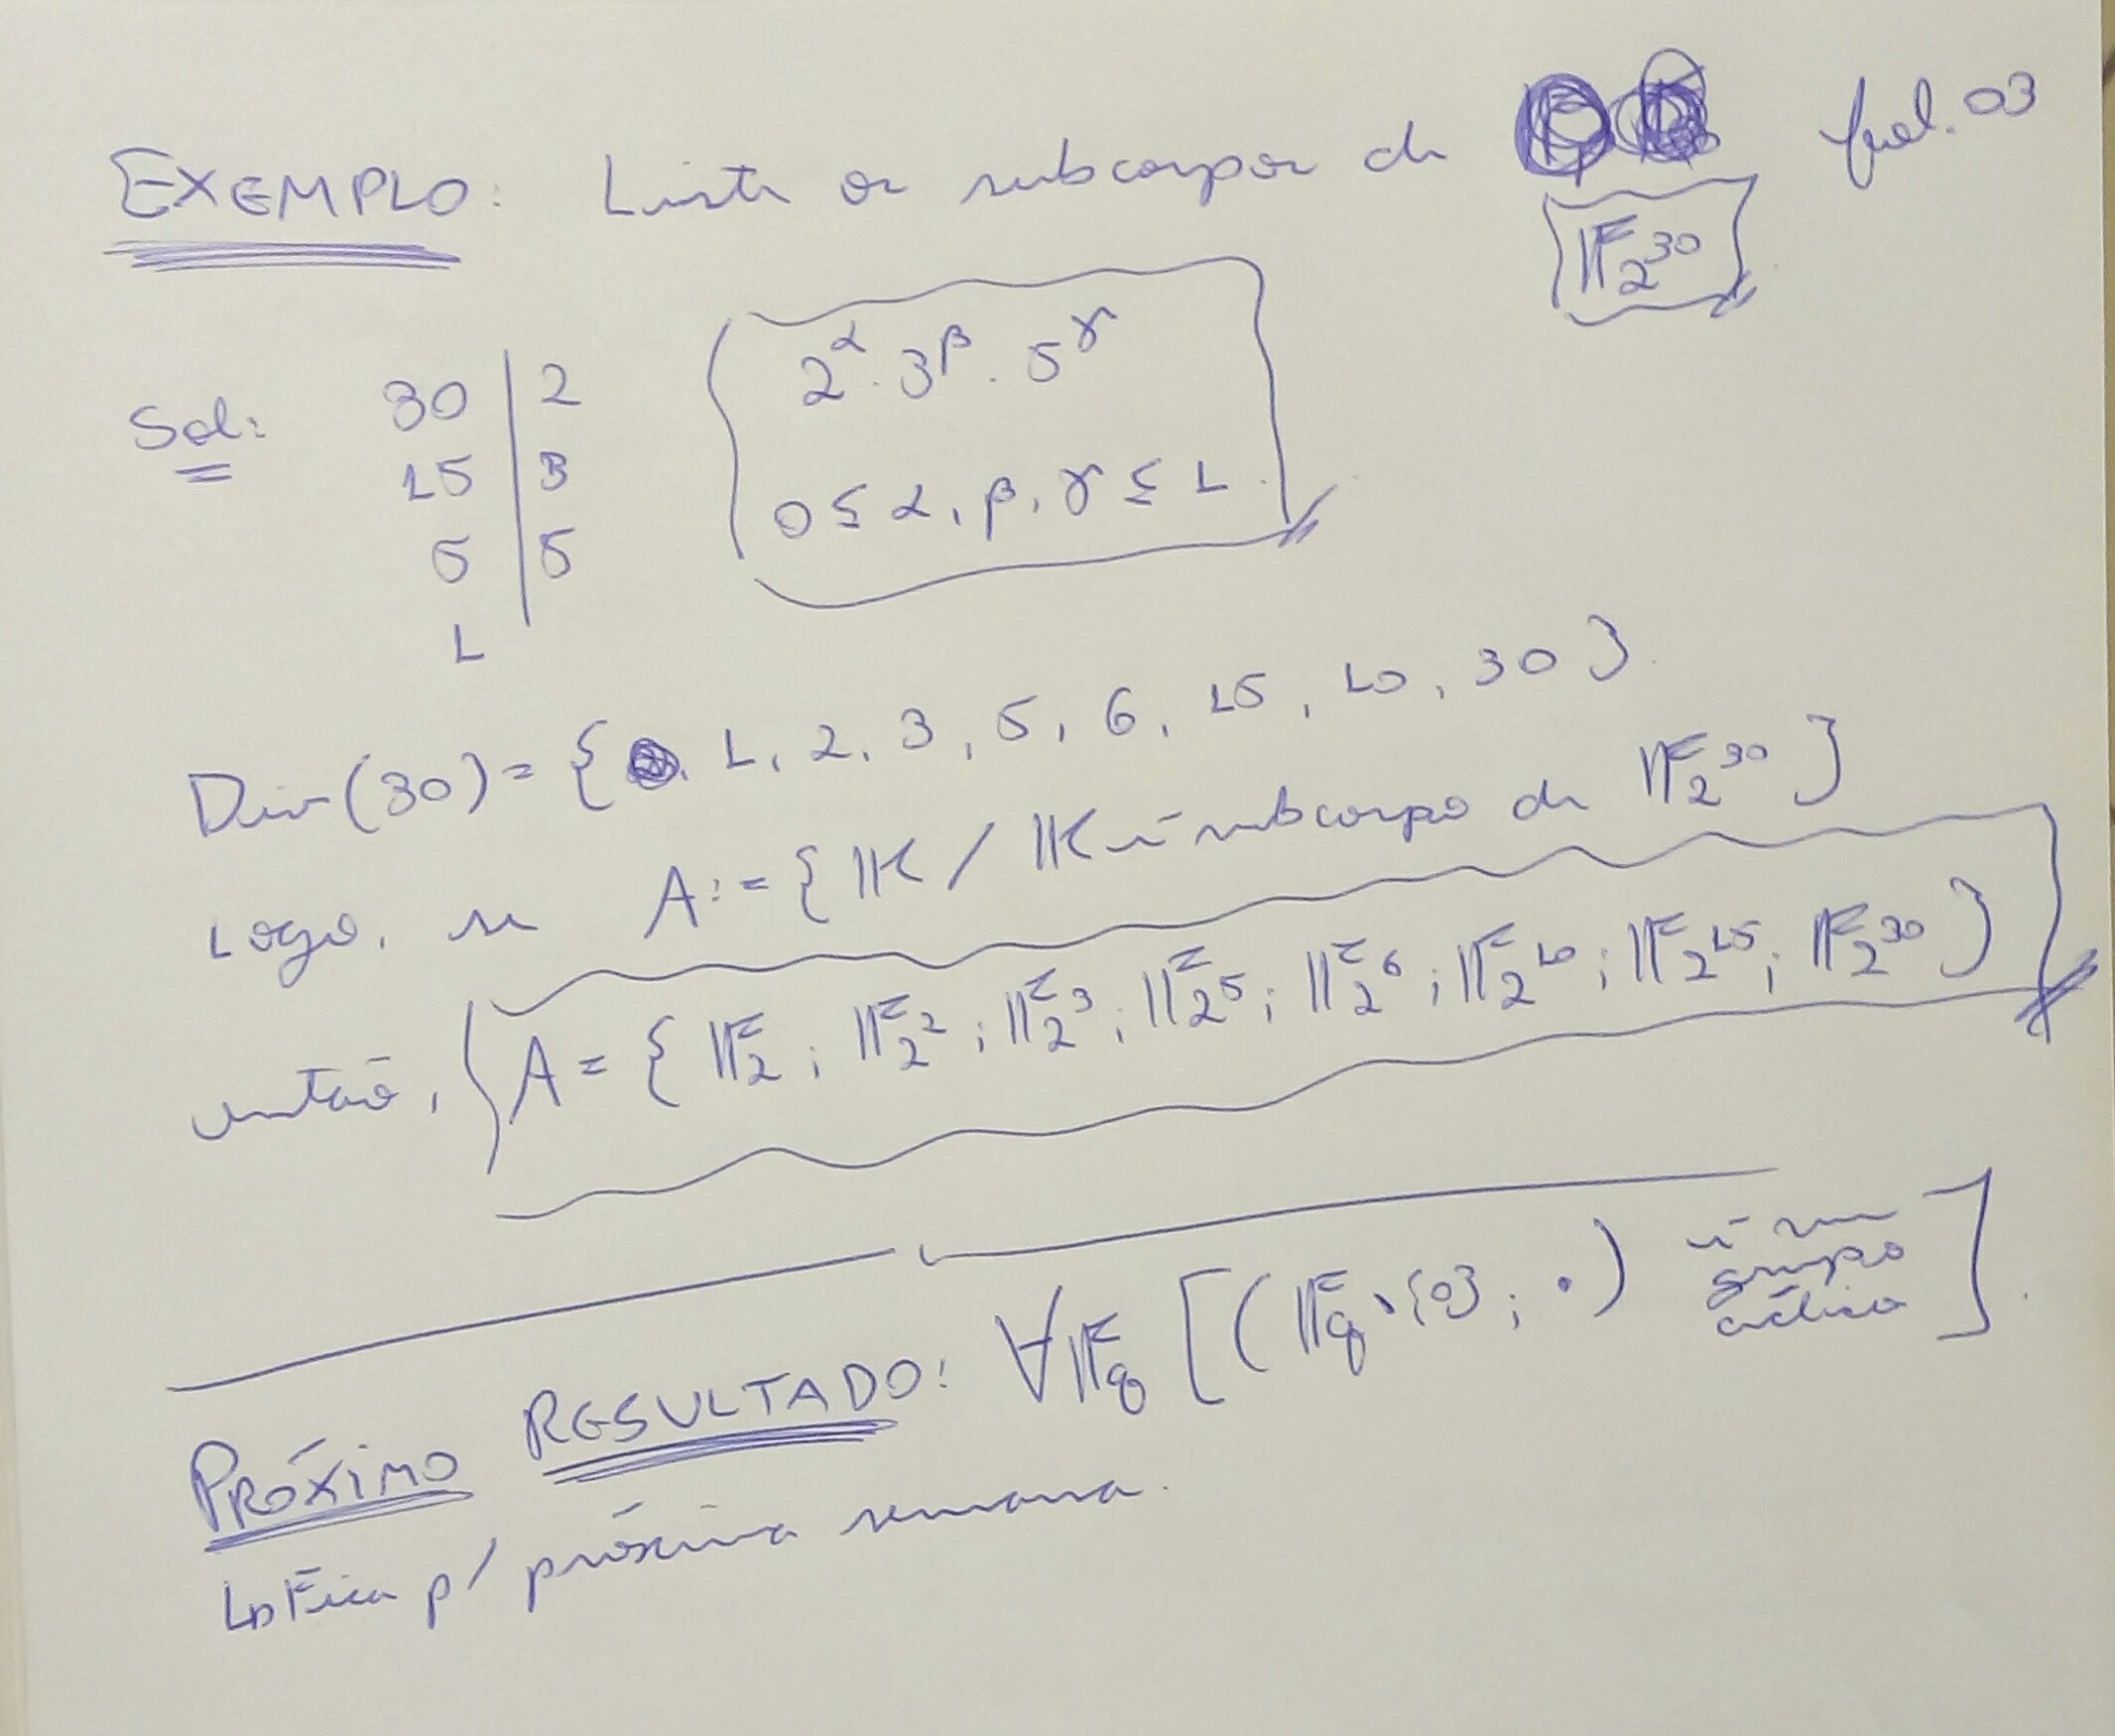 EXEMPLO: Liste os subcorpos de fol. 03
𝔽_{2^{30}}
Sol: 30 | 2
15 | 3
5 | 5
1
2^α · 3^β · 5^γ
0 ≤ α, β, γ ≤ 1
Div(30) = { 1, 2, 3, 5, 6, 15, 10, 30 }.
Logo, se A := { 𝕂 / 𝕂 é subcorpo de 𝔽_{2^{30}} }
então, A = { 𝔽_2 ; 𝔽_{2^2} ; 𝔽_{2^3} ; 𝔽_{2^5} ; 𝔽_{2^6} ; 𝔽_{2^{10}} ; 𝔽_{2^{15}} ; 𝔽_{2^{30}} }
PRÓXIMO RESULTADO: ∀𝔽_q [ ( 𝔽_q \ {0} ; · ) é um grupo cíclico ].
↳ Fica p/ próxima semana.